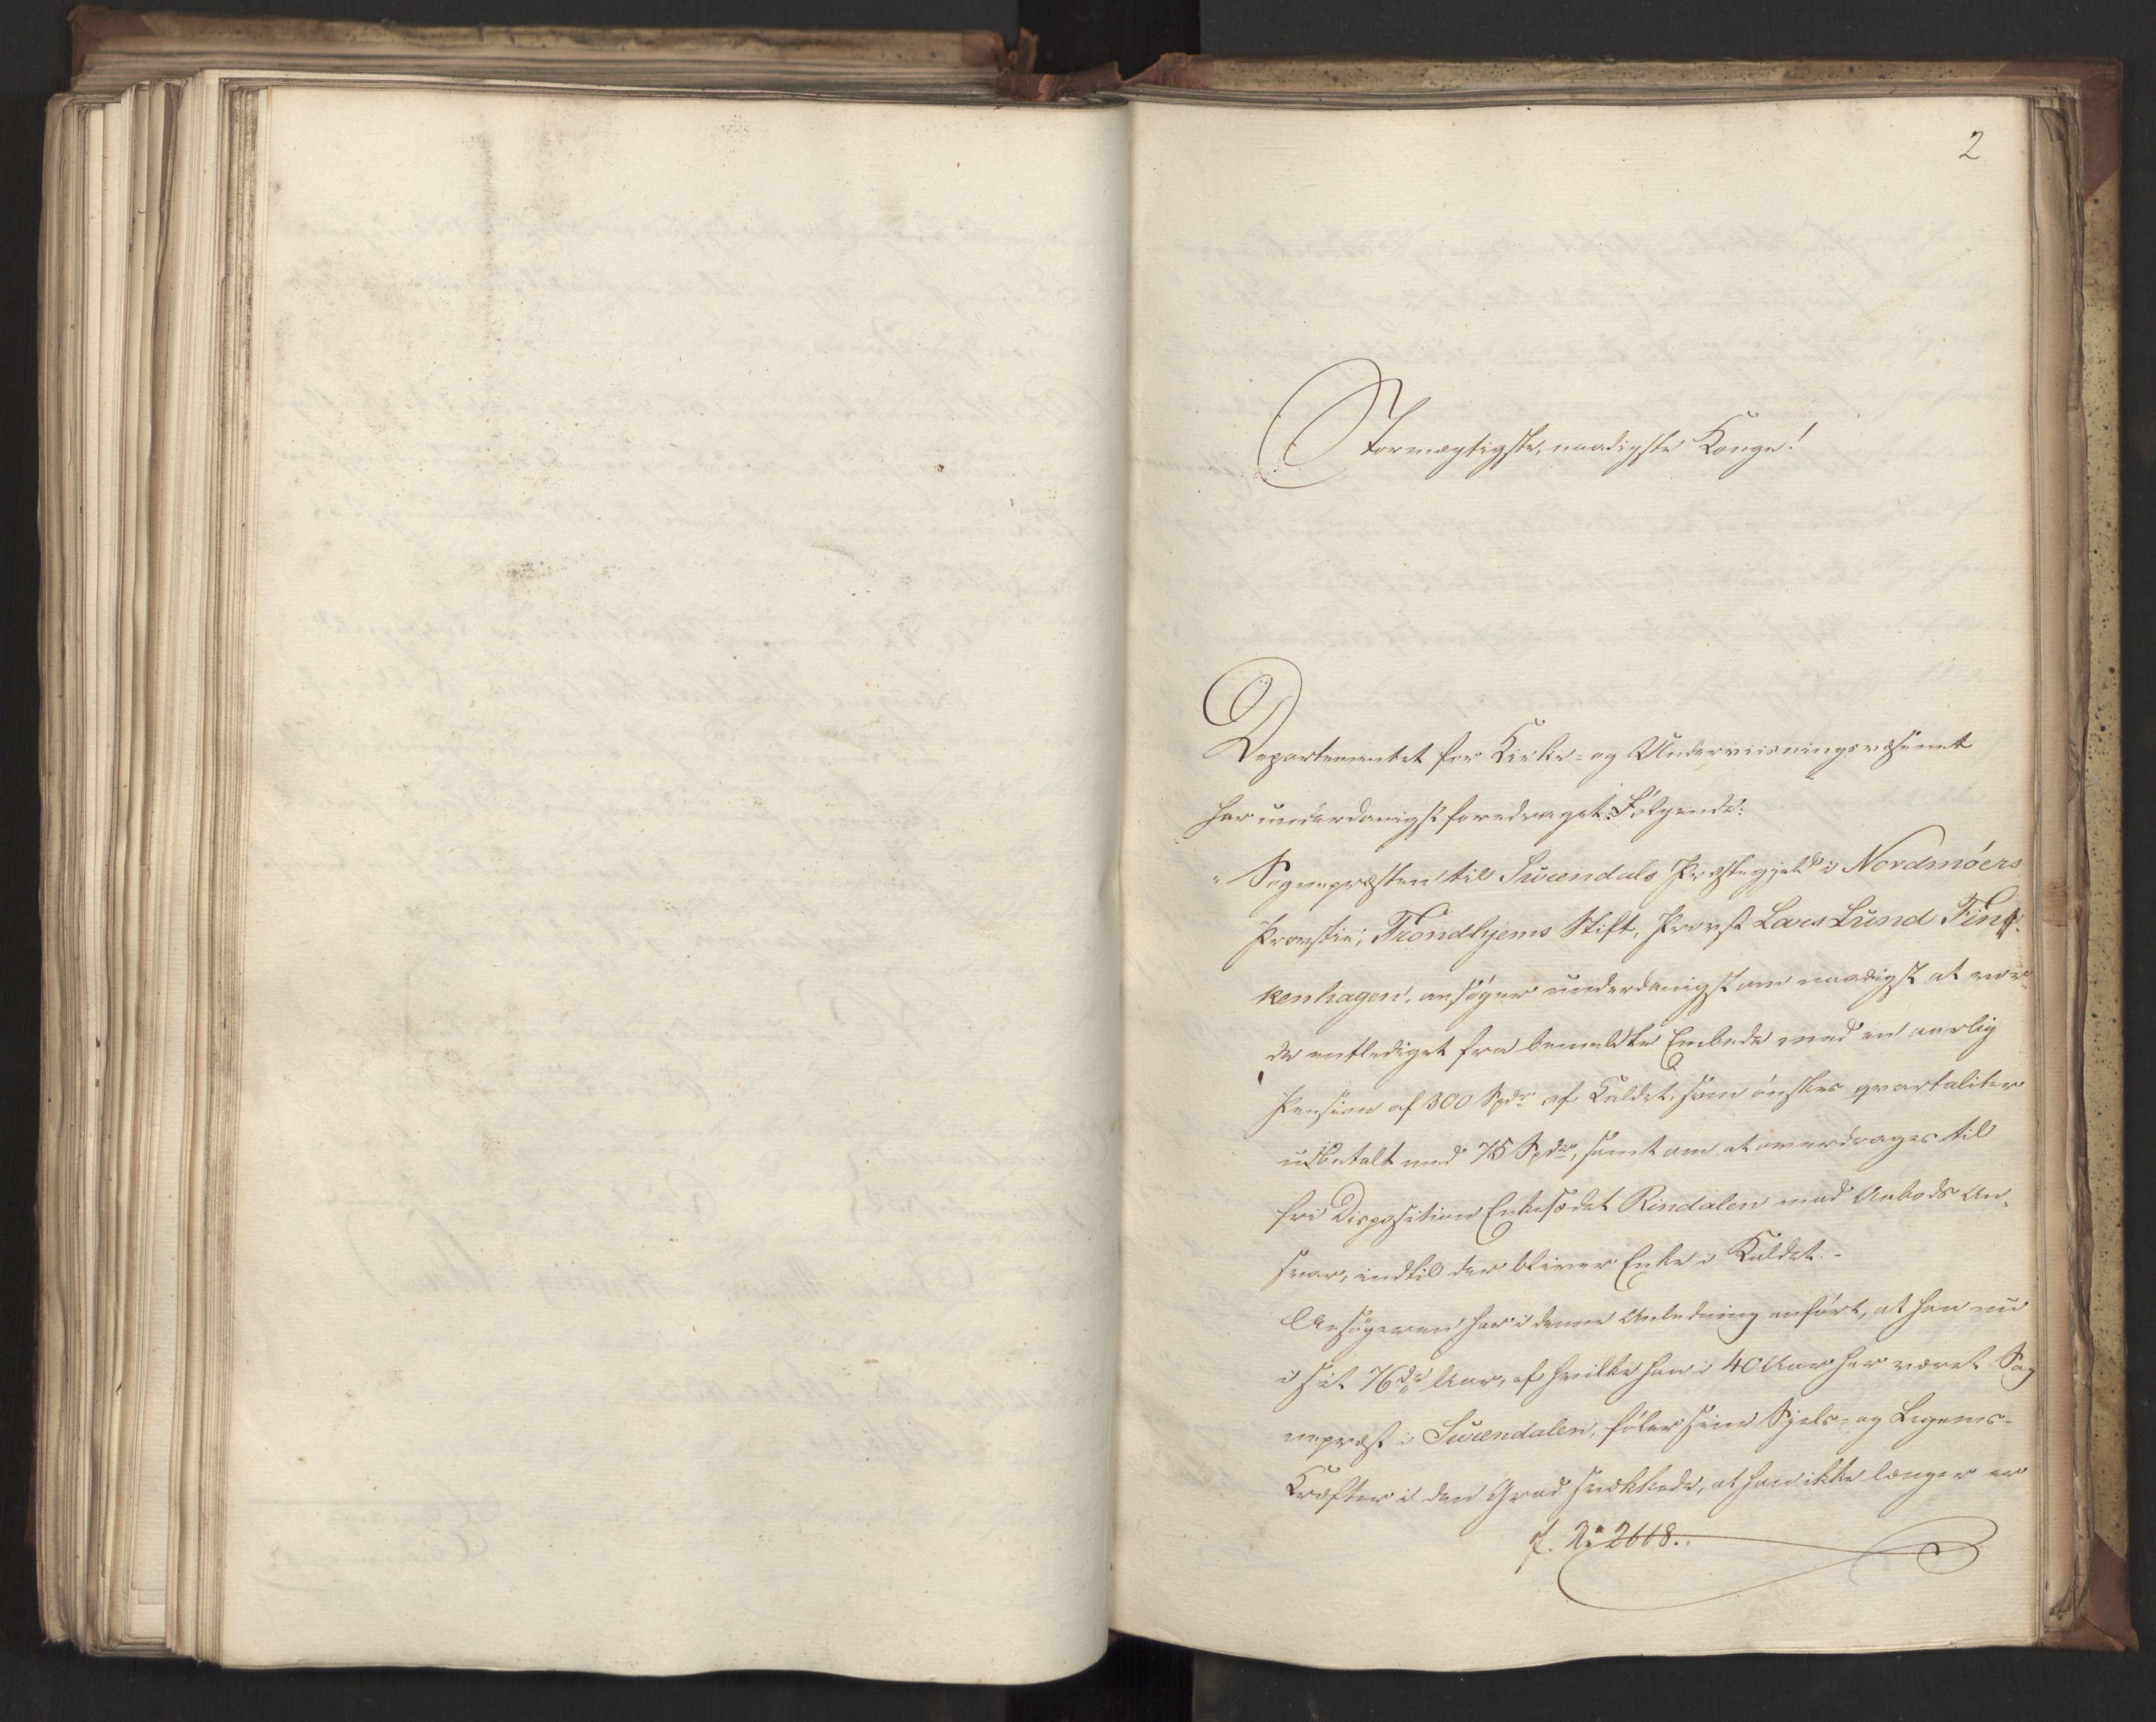 2
Stormægtigste, naadigste Konge!
Departementet for Kirke- og Underviisningsvæsenet
har underdanigst foredraget Følgende:
" Sognepræsten til Surendals Præstegjeld i Nordmöers
Provstie, Trondhjems Stift, Provst Lars Lund Fin-
kenhagen, ansøger underdanigst om naadigst at vor-
de entlediget fra bemeldte Embede med en aarlig
Pension af 300 Spdr af Kaldet, som ønskes qvartaliter
udbetalt med 75 Spdr, samt om at overdrages til
fri Disposition Enkesædet Rindalen med Aabods An-
svar, indtil der bliver Enke i Kaldet. -
Ansøgeren har i denne Anledning anført, at han nu
i sit 76de Aar, af hvilke han i 40 Aar har været Sog
nepræst i Surendalen, føler sine Sjels- og Legems-
Kræfter i den Grad svækkede, at han ikke længer er
J. No 2668.